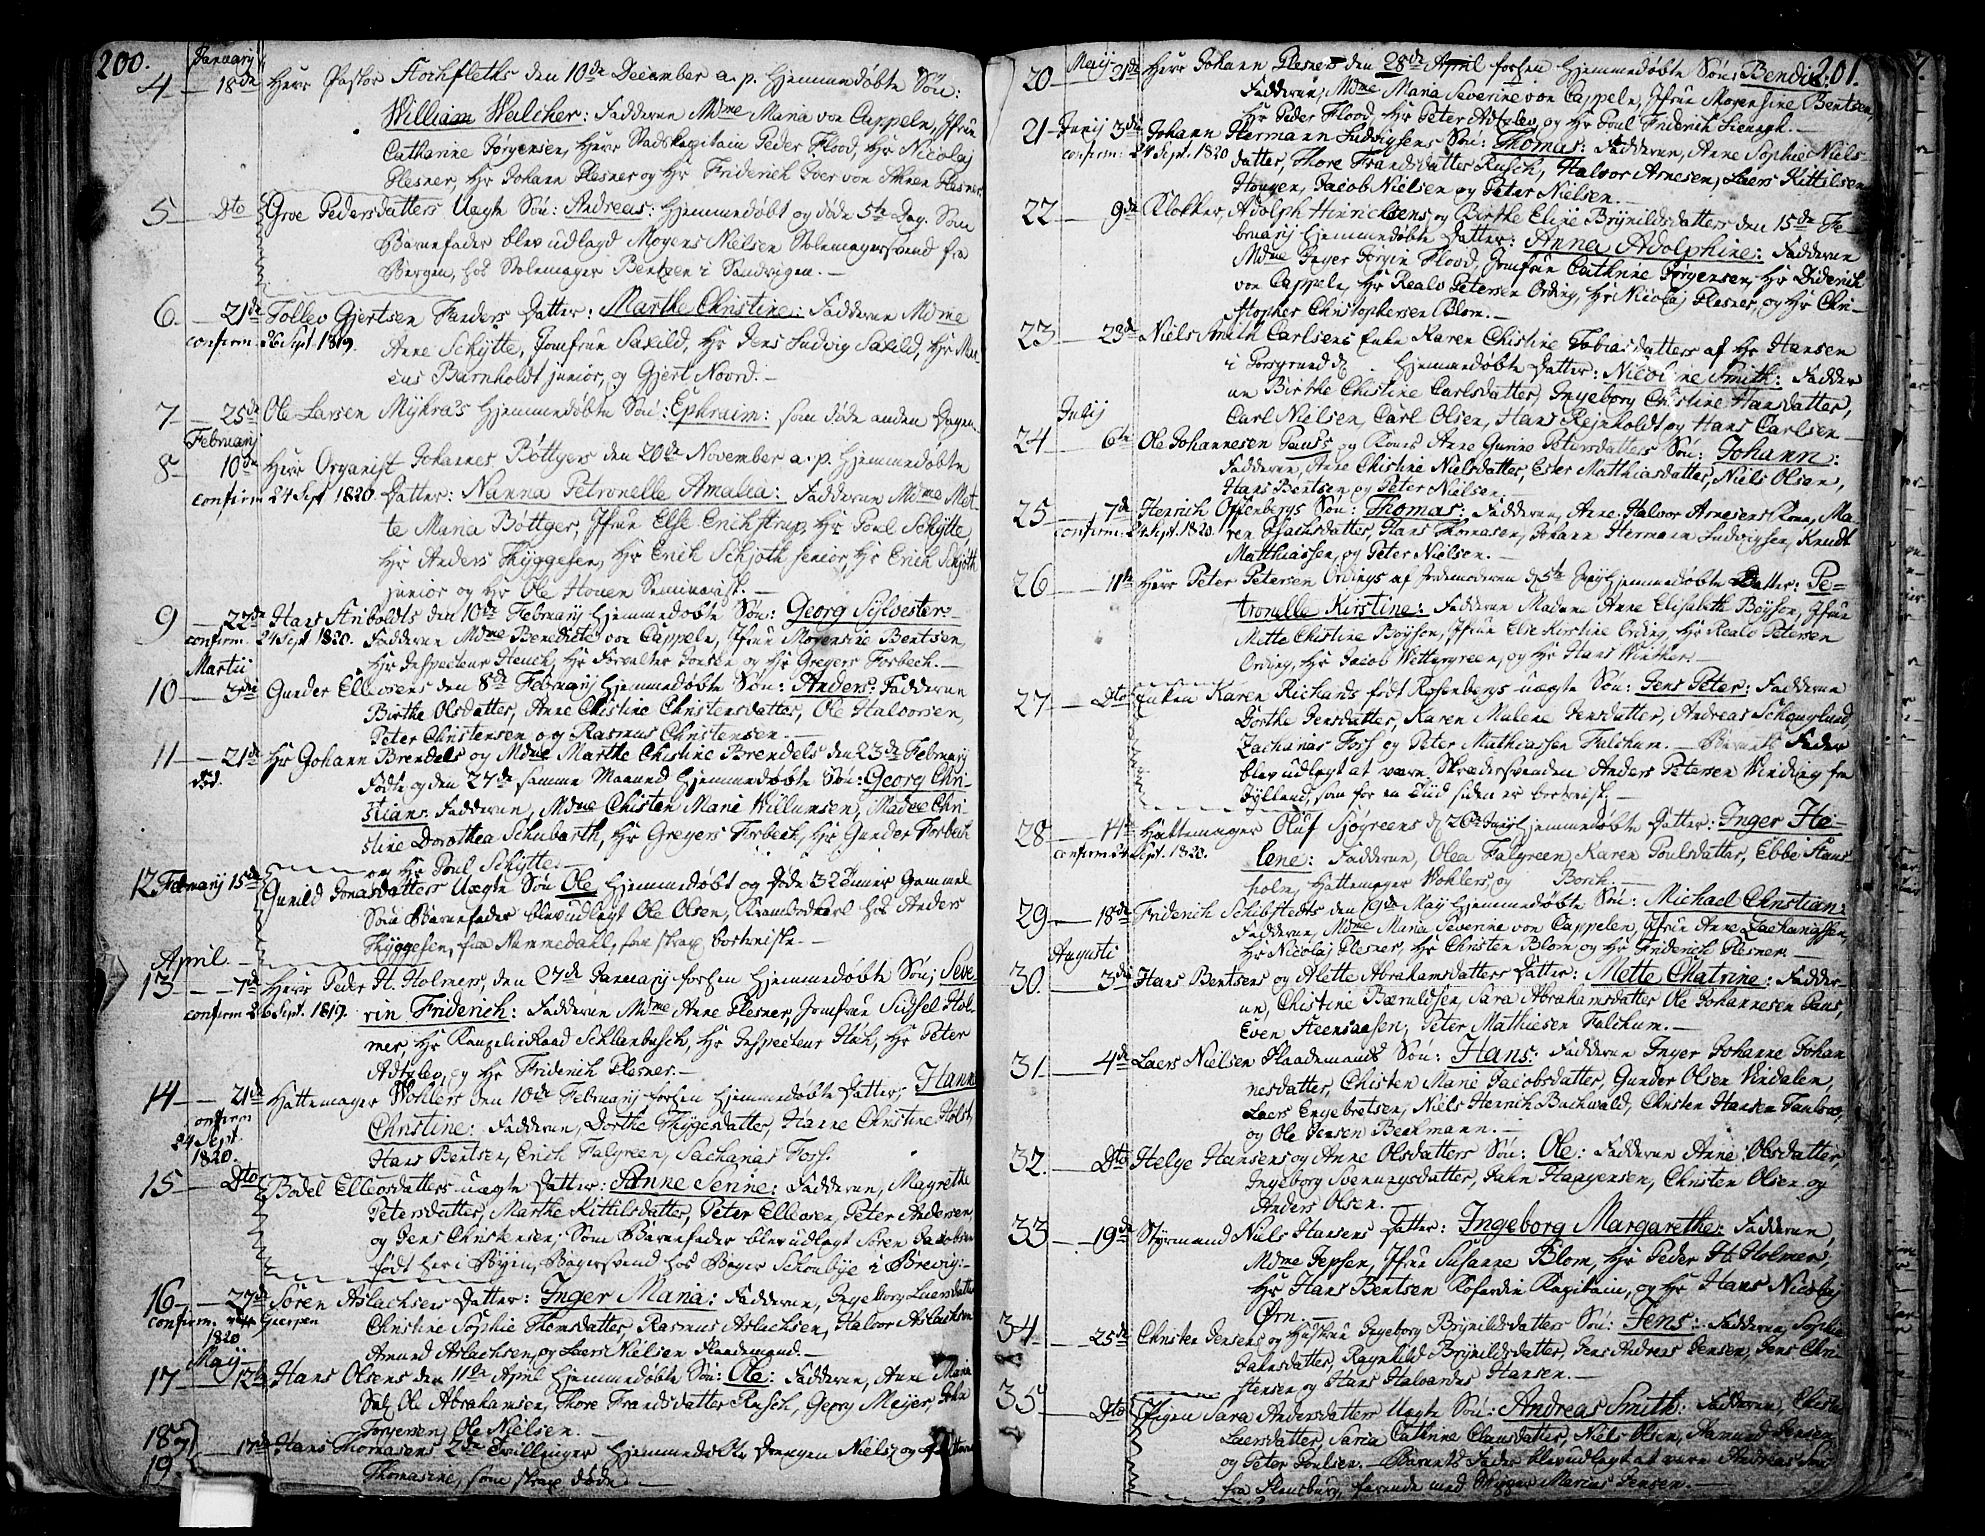 200.
Januarij
4 — 18de Herr Pastor Stochfleths den 10de December a. p. Hjemmedøbte Søn:
William Welcher: Fadderne Mdme Maria von Cappeln, Jfru
Catharine Jørgensen, Herr Stadskapitain Peder Flood, Hr Nicolaj
Plesner, Hr Johann Plesner og Hr Friderich von Plesner
5 — Dto Groe Pedersdatters Uægte Søn: Andreas: Hjemmedøbt og døde 5te Dag. Som
Barnefader blev udlagd Mogens Nielsen Stolemagersvend fra
Bergen, hos Stolemager Bentzen i Sandvigen. —
6. — 21de Tollev Gjertsen Fanders Datter: Marthe Christine: Fadderne Mdme
confirm. 26 Sept. 1819.
Anne Schytte, Jomfrue Saxild, Hr Jens Ludvig Saxild, Hr Mar-
cus Barnholdt junior, og Gjert Noord. —
7 — 25de Ole Larsen Myhra's Hjemmedøbte Søn: Ephraim: som døde anden Dagen.
Februarij
8 10de Herr Organist Johannes Bøttgers den 20de November a. p. Hjemmedøbte
confirm 24 Sept 1820. Datter: Nanna Petronelle Amalia: Fadderne Mdme Met-
te Maria Bøttger, Jfrue Else Erichstrup, Hr Poul Schytte,
Hr Anders Thyggesen, Hr Erich Schjøth senior, Hr Erich Schjøth
junior og Hr Ole Houen Seminarist. —
9 — 22de Hans Anboldts den 10de Februarij Hjemmedøbte Søn: Georg Sylvester:
confirm. 24 Sept 1820. Fadderne Mdme Benedicte von Cappeln, Jfrue Morensine Bentsen,
Hr Inspecteur Heuch, Hr Forvalter Jonsen og Hr Gregers Forbech. —
Martij
10 — 3die Gunder Elleosens den 8de Februarij Hjemmedøbte Søn: Anders: Fadderne
Birthe Olsdatter, Anne Christine Christensdatter, Ole Halvorsen,
Peter Christensen og Rasmus Christensen. —
11 — 21de Hr Johann Brendels og Mdme Marthe Christine Brendels den 23de Februarij
død. fødte og den 27de samme Maaned Hjemmedøbte Søn: Georg Chri-
stian: Fadderne, Mdme Chisten Marie Willumsen, Madee Chri-
stine Dorothea Schubarth, Hr Gregers Forbech, Hr Gunder Forbech
og Hr Poul Schytte. —
12 Februarij 15de Gunild Jonasdatters Uægte Søn Ole Hjemmedøbt og døde 3 Timer Gammel
Som Barnefader blev udlagt Ole Olsen, Kramboekarl hos Anders
Thyggesen, fra Nummedahl, som strax bortreiste. —
April
13 — 7de Herr Peder H. Holmers, den 27de Januarij forhen Hjemmedøbte Søn; Seve-
confirm 26 Sept. 1819. rin Friderich: Fadderne Mdme Anne Plesner, Jomfrue Sidsel Hol-
mer, Hr Kancelieraad Schlanbusch, Hr Inspecteur Høh, Hr Peter
Adtzlev, og Hr Friderich Plesner. —
14 — 21de Hattemager Wohlers den 10de Februarij forhen Hjemmedøbte Datter, Hanne
confirm
24 Sept.
1820.
Christine: Fadderne, Dorthe Thyggesdatter, Hanne Christine Holst,
Hans Bentsen, Erich Falgreen, Sacharias Foss.
15 — Dto Bodel Elleosdatters uægte Datter: Anne Senine: Fadderne, Magrethe
Petersdatter, Marthe Kittilsdatter, Peter Elleosen, Peter Andersen,
og Jens Christensen. Som Barnefader blev udlagt Søren Jacobsen
født her i Byen, Bagersvend hos Bager Schoubye i Brevig. —
16, — 27de Søren Aslachsens Datter: Inger Maria: Fadderne, Ingeborg Laersdatter
confirm. ved Gierpen
1820
Christine Sophie Thomsdatter, Rasmus Aslachsen, Halvor Aslachsen
Amund Aslachsen, og Laers Nielsen Flaademand. —
Maij
17 — 12te Hans Olsens den 11de April Hjemmedøbte Søn: Ole: Fadderne, Anne Maria
Sal. Ole Abrahamsen, Thore Frandsdatter Rusch, Georg Meijer, John
Jørgensen, Ole Nielsen. —
18 7 — 17de Hans Thomasens 2de Tvillinger Hjemmedøbte Drengen Niels, og Datteren
19 Thomasine, som strax døde —
201.
20 — Maij 21de Herr Johann Plesners den 28de April forhen Hjemmedøbte Søn: Bendix:
Fadderne, Mdme Maria Severine von Cappeln, Jfrue Morensine Bentsen,
Hr Peder Flood, Hr Peter Adtzlev, og Hr Poul Friderich Lienagh. —
21 — Junij 3die Johann Hermann Ludvigsens Søn: Thomas: Fadderne, Anne Sophie Niels-
confirm: 24 Sept. 1820 datter, Thore Frandsdatter Rusch, Halvor Arnesen, Laers Kittilsen
Hougen, Jacob Nielsen og Peter Nielsen. —
22 — 9de Klokker Adolph Hinrichsens og Birthe Eline Brynildsdatters den 15de Fe-
bruarij Hjemmedøbte Datter: Anna Adolphine: Fadderne
Mdme Inger Jørgin Flood, Jomfrue Cathrine Jørgensen, Hr Diderich
von Cappeln, Hr Realv Petersen Ording, Hr Nicolaj Plesner, og Hr Chri-
stopher Christophersen Blom. —
23 — 23de Niels Smith Carlsens Enke Karen Christine Tobiasdatters af Hr Hansen
i Porsgrund d. Hjemmedøbte Datter: Nicoline Smith: Fadder-
ne Birthe Christine Carlsdatter, Ingeborg Christine Hansdatter,
Carl Nielsen, Carl Olsen, Hans Rejnholdt og Hans Carlsen —
Julij
24 — 6te Ole Johannesen Pauss og Kones Anne Gurine Petersdatters Søn: Johann:
Fadderne, Anne Christine Nielsdatter, Ester Matthiasdatter, Niels Olsen,
Hans Bentsen og Peter Nielsen. —
25 — 7de Henrich Offenbergs Søn: Thomas: Fadderne, Anne Halvor Arnesens Kone, Ma-
confirm: 24 Sept. 1820. ren Isachsdatter, Hans Thomasen, Johann Hermann Ludvigsen, Knudt
Matthiassen, og Peter Nielsen. —
26 — 11te Herr Peter Petersen Ordings af Jordemoderen d 5te Junij Hjemmedøbte Datter: Pe-
tronelle Kirstine: Fadderne Madame Anne Elisabeth Boysen, Jfrue
Mette Christine Boysen, Jfrue Else Kirstine Ording, Hr Realv Petersen
Ording, Hr Jacob Wettergreen, og Hr Hans Winther. —
27 — Dto Enken Karen Richards født Rosenbergs uægte Søn: Jens Peter: Fadderne
Dorthe Jensdatter, Karen Malene Jensdatter, Andreas Schouglund,
Zacharias Foss og Peter Mathiassen Falchum. — Barnets Fader
blev udlagt at være Skrædersvenden Anders Petersen Winding fra
Jylland, som for en Tiid siden er bortreist. —
28 — 14de Hattemager Oluf Sjøgreens d 20de Junij Hjemmedøbte Datter: Inger He-
confirm: 24 Sept. 1820. lene: Fadderne, Olea Falgreen, Karen Poulsdatter, Ebbe Hans-
holm, Hattemager Wohlers, og Borch. —
29 — 18de Friderich Schibstedts den 19de Maij Hjemmedøbte Søn: Michael Christian:
Fadderne, Mdme Maria Severine von Cappelen, Jfrue Anne Zachariassen,
Hr Nicolaj Plesner, Hr Christen Blom og Hr Friderich Plesner. —
Augusti
30. — 3die Hans Bentsens og Alette Abrahamsdatters Datter: Mette Chatrine: Fadder-
ne, Christine Bærulfsen, Sara Abrahamsdatter Ole Johannesen Paus,
Even Steensaasen, Peter Mathiesen Falchum. —
31 — 4de Laers Nielsen Flaademands Søn: Hans: Fadderne Inger Johanne Johan-
nesdatter, Christen Marie Jacobsdatter, Gunder Olsen Vindalen,
Laers Engebretsen, Niels Henrich Buchwald, Christen Hansen Taulow,
og Ole Jensen Beekmann. —
32. — Dto Helge Hansens og Anne Olsdatters Søn: Ole: Fadderne Anne Olsdatter,
Ingeborg Svenungsdatter, Jahn Haagensen, Christen Olsen og
Anders Olsen. —
33 — 19de Styrmand Niels Hansens Datter: Ingeborg Margarethe: Fadderne,
Mdme Jepsen, Jfrue Susanne Blom, Hr Peder H. Holmer,
Hr Hans Bentsen Kofardie Kapitain, og Hr Hans Nicolaj
Ørn. —
34. — 25de Christen Jensens og Hustrue Ingeborg Brynildsdatters Søn: Jens: Fadderne, Sophie
Jahnsdatter, Ragnild Brynildsdatter, Jens Andreas Jensen, Jens Chri-
stensen og Hans Halvardus Hansen. —
35 — Dto Pigen Sara Andersdatters Uægte Søn: Andreas Smith: Fadderne, Christine
Laersdatter, Saria Cathrine Clausdatter, Niels Olsen, Aamund Jensen
og Peter Poulsen. — Barnets Fader blev udlagt at være Andreas Smith
fra Flensburg, farende med Skipper Marius Jensen. —